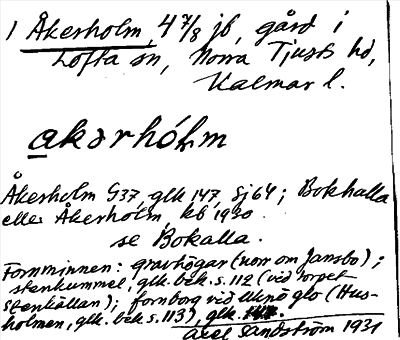 1 Åkerholm, 4 7/8 jb, gård i
Lofta sn, Norra Tjusts hd,
Kalmar l.
akərhólm
Åkerholm G37, glk 147, Sj64; Bokhalla
eller Åkerholm, kb 1930.
se Bokalla.
Fornminnen: gravhögar (norr om Jansbo);
stenkummel, glk. bek. s. 112 (vid torpet
Stenkällan); fornborg vid (Hus-
holmen, glk. bek s. 113), glk. 147.
Axel Sandström 1931